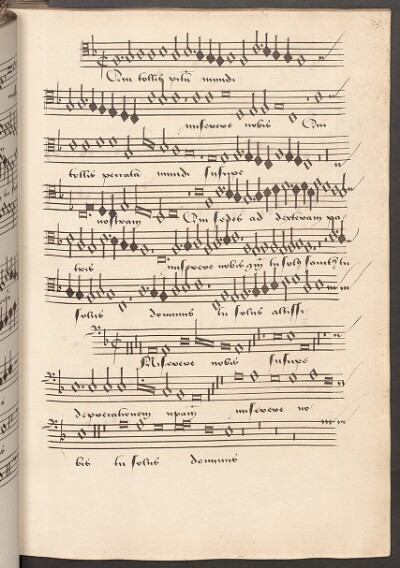 Qui tollis pctm mundi
miserere nobis Qui
tollis peccata mundi suscipe
nostram Qui sedes ad dexteram pa
tris miserere nobis qm tu solus sanctus tu
solus dominus tu solus altissi
Miserere nobis suscipe
deprecationem nram miserere no
bis tu solus dominus